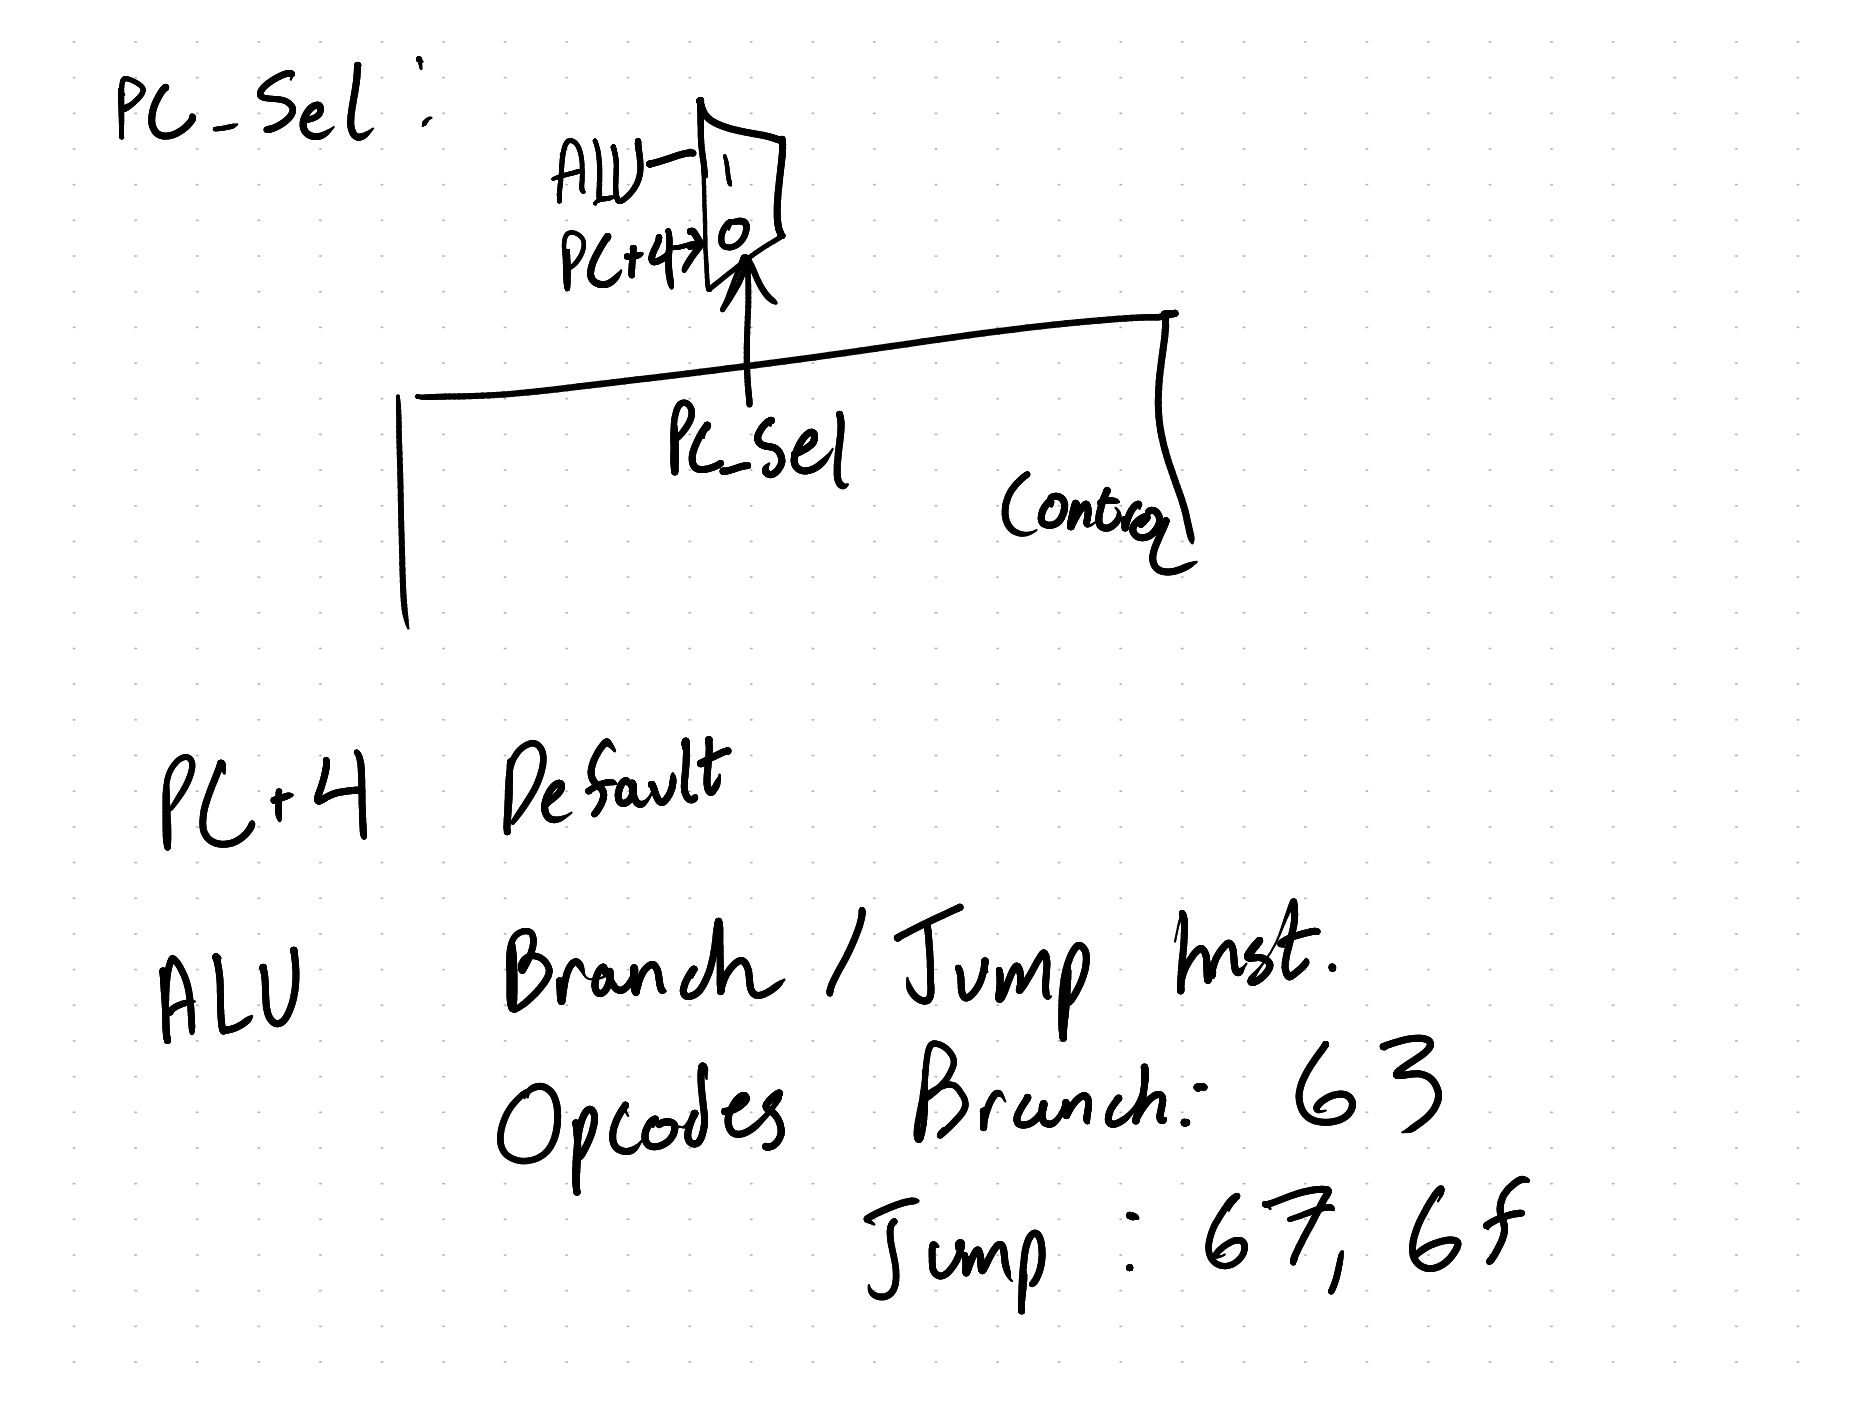 PC_Sel:
ALU
1
PC+4
0
PC_Sel
Control
PC+4 Default
ALU Branch / Jump Inst.
Opcodes Branch: 63
Jump : 67, 6f